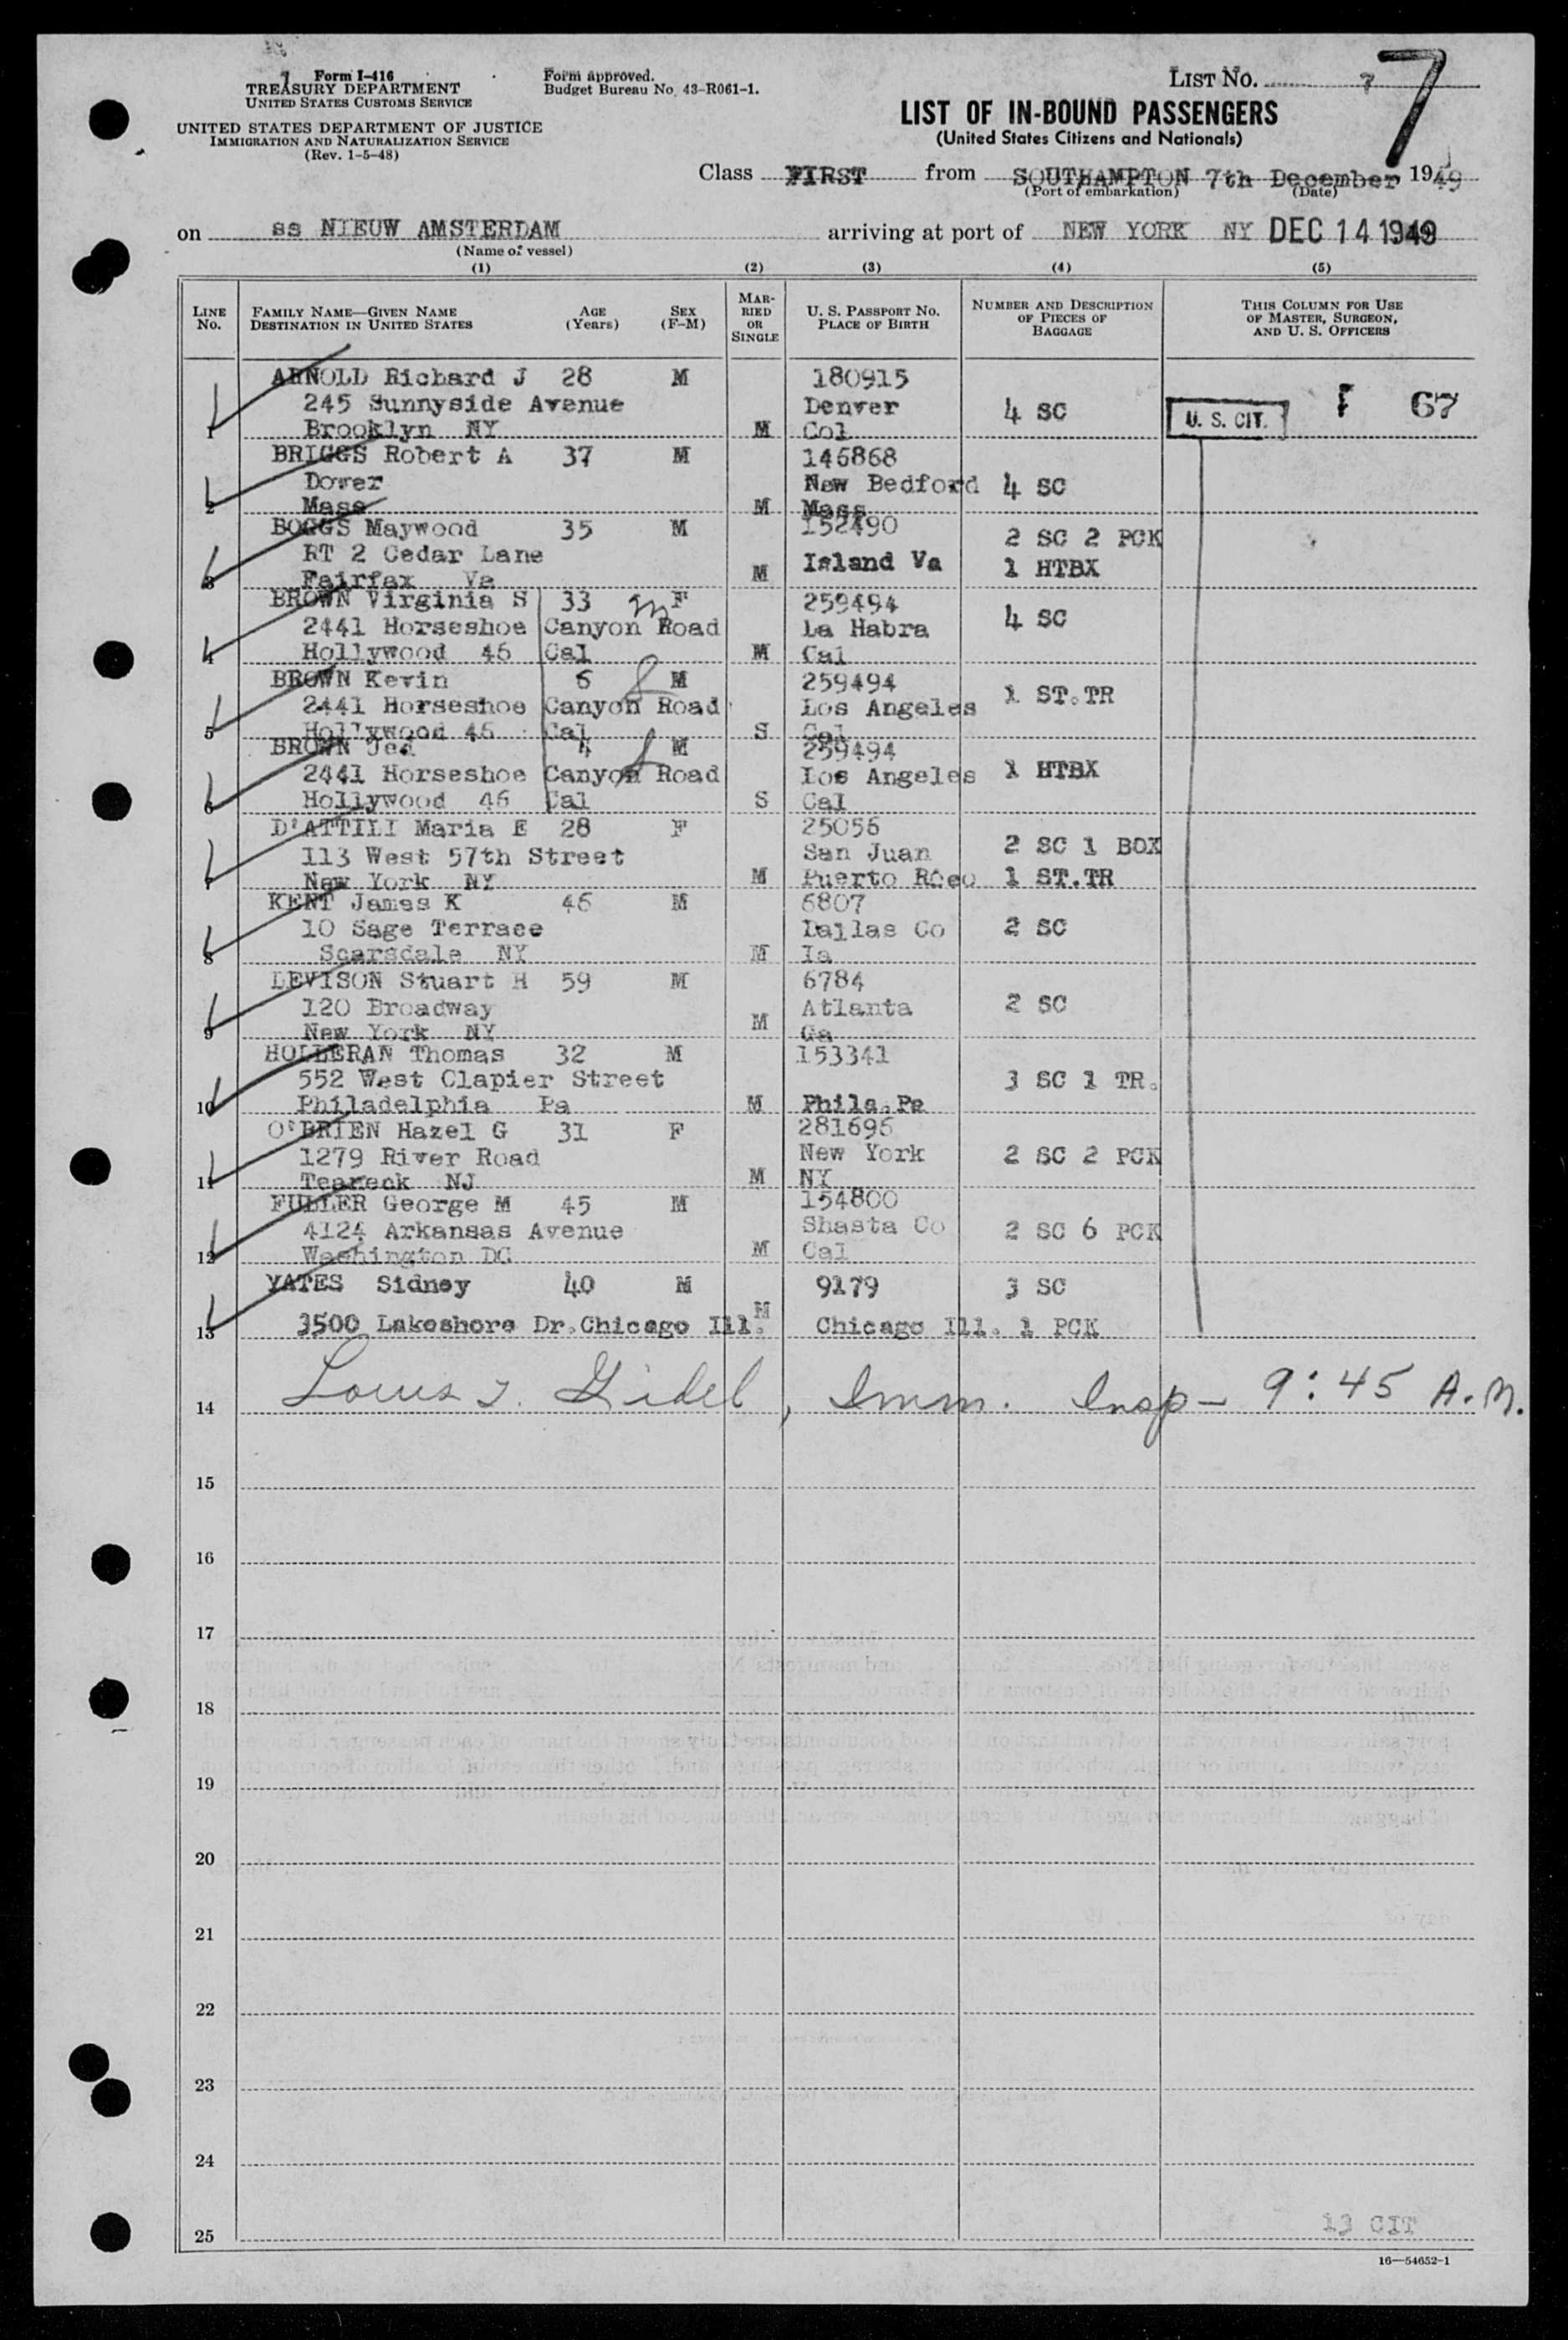 Form I-416
TREASURY DEPARTMENT
UNITED STATES CUSTOMS SERVICE
UNITED STATES DEPARTMENT OF JUSTICE
IMMIGRATION AND NATURALIZATION SERVICE
(Rev. 1-5-48)
Form approved.
Budget Bureau No. 43-R061-1.
LIST No. 7
7
LIST OF IN-BOUND PASSENGERS
(United States Citizens and Nationals)
Class FIRST from SOUTHAMPTON 7th December 1949
(Port of embarkation) (Date)
on ss NIEUW AMSTERDAM arriving at port of NEW YORK NY DEC 14 1949
(Name of vessel)
(1) (2) (3) (4) (5)
LINE No. FAMILY NAME—GIVEN NAME DESTINATION IN UNITED STATES AGE (Years) SEX (F-M) MARRIED OR SINGLE U. S. PASSPORT No. PLACE OF BIRTH NUMBER AND DESCRIPTION OF PIECES OF BAGGAGE THIS COLUMN FOR USE OF MASTER, SURGEON, AND U. S. OFFICERS
ARNOLD Richard J 28 M 180915
245 Sunnyside Avenue Denver 4 SC U. S. CIT. F 67
1 Brooklyn NY M Col
BRIGGS Robert A 37 M 146868
Dover New Bedford 4 SC
2 Mass M Mass
BOGGS Maywood 35 M 152490 2 SC 2 PCK
RT 2 Cedar Lane Island Va 1 HTBX
3 Fairfax Va M
BROWN Virginia S 33 m F 259494
2441 Horseshoe Canyon Road La Habra 4 SC
4 Hollywood 46 Cal M Cal
BROWN Kevin 6 M 259494
2441 Horseshoe Canyon Road Los Angeles 1 ST.TR
5 Hollywood 46 Cal S Cal
BROWN Jed 4 M 259494
2441 Horseshoe Canyon Road Los Angeles 1 HTBX
6 Hollywood 46 Cal S Cal
D'ATTILI Maria E 28 F 25056
113 West 57th Street San Juan 2 SC 1 BOX
7 New York NY M Puerto Rico 1 ST.TR
KENT James K 46 M 6807
10 Sage Terrace Dallas Co 2 SC
8 Scarsdale NY M Ia
LEVISON Stuart H 59 M 6784
120 Broadway Atlanta 2 SC
9 New York NY M Ga
HOLLERAN Thomas 32 M 153341
552 West Clapier Street 3 SC 1 TR.
10 Philadelphia Pa M Phila.Pa
O'BRIEN Hazel G 31 F 281696
1279 River Road New York 2 SC 2 PCK
11 Teaneck NJ M NY
FULLER George M 45 M 154800
4124 Arkansas Avenue Shasta Co 2 SC 6 PCK
12 Washington DC M Cal
YATES Sidney 40 M 9179 3 SC
13 3500 Lakeshore Dr.Chicago Ill. M Chicago Ill. 1 PCK
14 Louis J. Gidel, Imm. Insp — 9:45 A.M.
15
16
17
18
19
20
21
22
23
24
25
13 CIT
16—54652-1